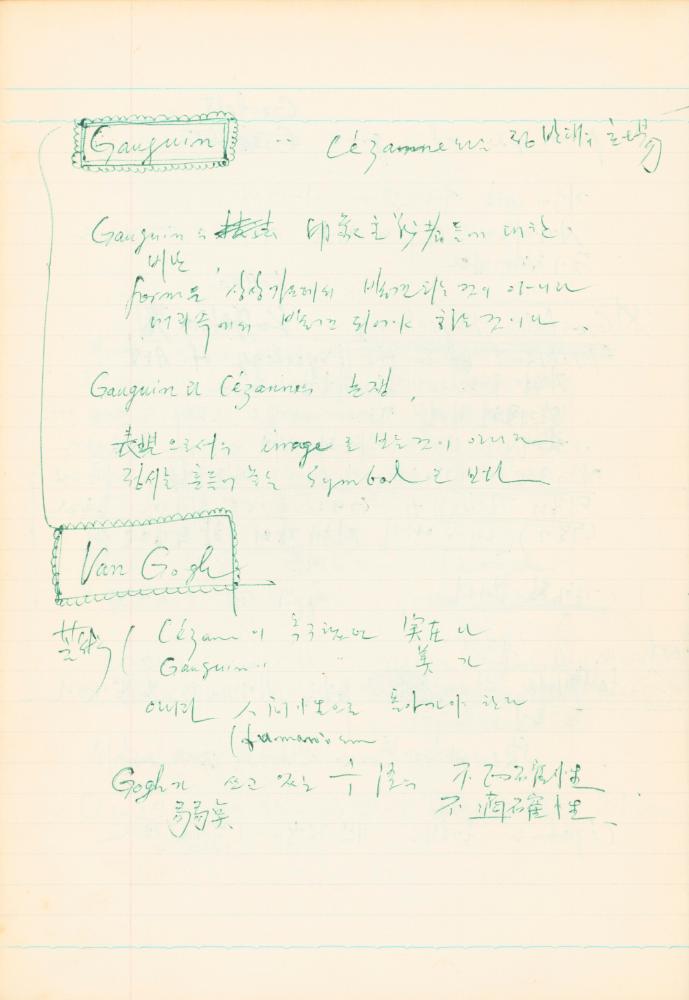 Gauguin .. Cézanne와는 정반대의 立場
Gauguin의 印象主義者들에 대한
비난
form은, 상상가운데서 발견되는 것이 아니라
머리속에서 발견되어야 하는 것이다..
Gauguin과 Cézanne의 논쟁,
表現으로서의 image로 보는것이 아니라
symbol로 보다
Van Gogh
芸術 ( Cézanne이 추구했던 実在나
Gauguin이 " 美가
아니라 人間的으로 돌아가야 한다
(humanism
Gogh가 쓰고 있는 手法의 不正確性
弱点 不適確性